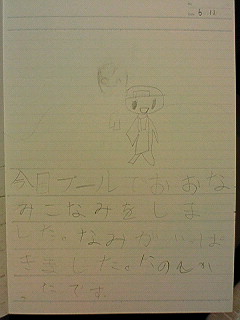 今日プールでおおな
みこなみをしま
した。なみがいっぱ
きました。たのしか
ったです。